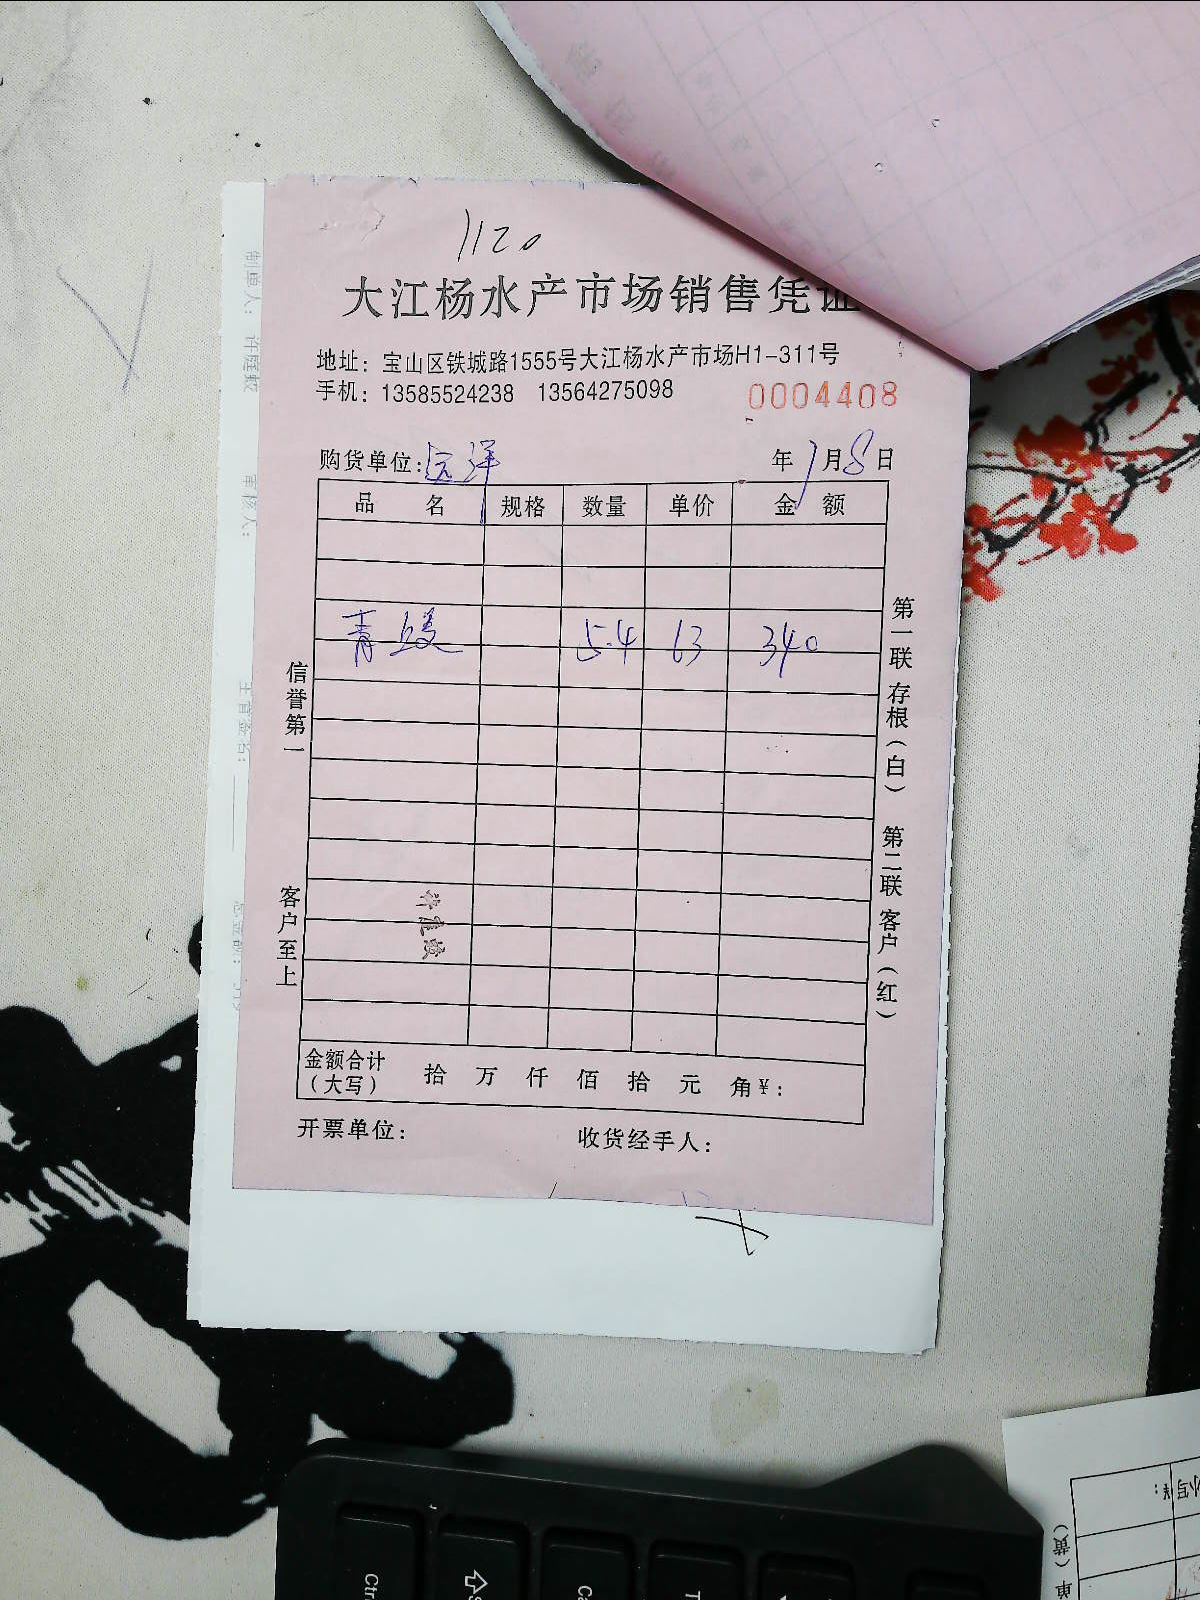 1120
大江杨水产市场销售凭证
地址：宝山区铁城路1555号大江杨水产市场H1-311号
手机：13585524238 13564275098
0004408
购货单位：远洋 年1月8日
品名 规格 数量 单价 金额
青 5.4 63 340
信誉第一
客户至上
第一联存根（白）
第二联客户（红）
金额合计（大写） 拾 万 仟 佰 拾 元 角 ¥：
开票单位： 收货经手人：
制单人：
Ctr